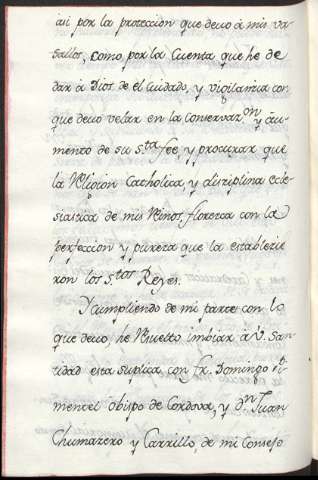 asi por la proteccion que devo à mis va
sallos, como por la Cuenta que he de
dar à Dios de el Cuidado, y vigilancia con
que devo velar en la conservaz.on y au
mento de su S.ta fee, y procurar que
la Religion Catholica, y disciplina ecle
siastica de mis Reinos florezca con la
perfeccion y pureza que la establezie
ron los S.tos Reyes.
Y cumpliendo de mi parte con lo
que devo, he Resuelto imbiar à V. San
tidad esta suplica con fr. Domingo Pi
mentel obispo de Cordova, y d.n Juan
Chumazero y Carrillo, de mi Consejo